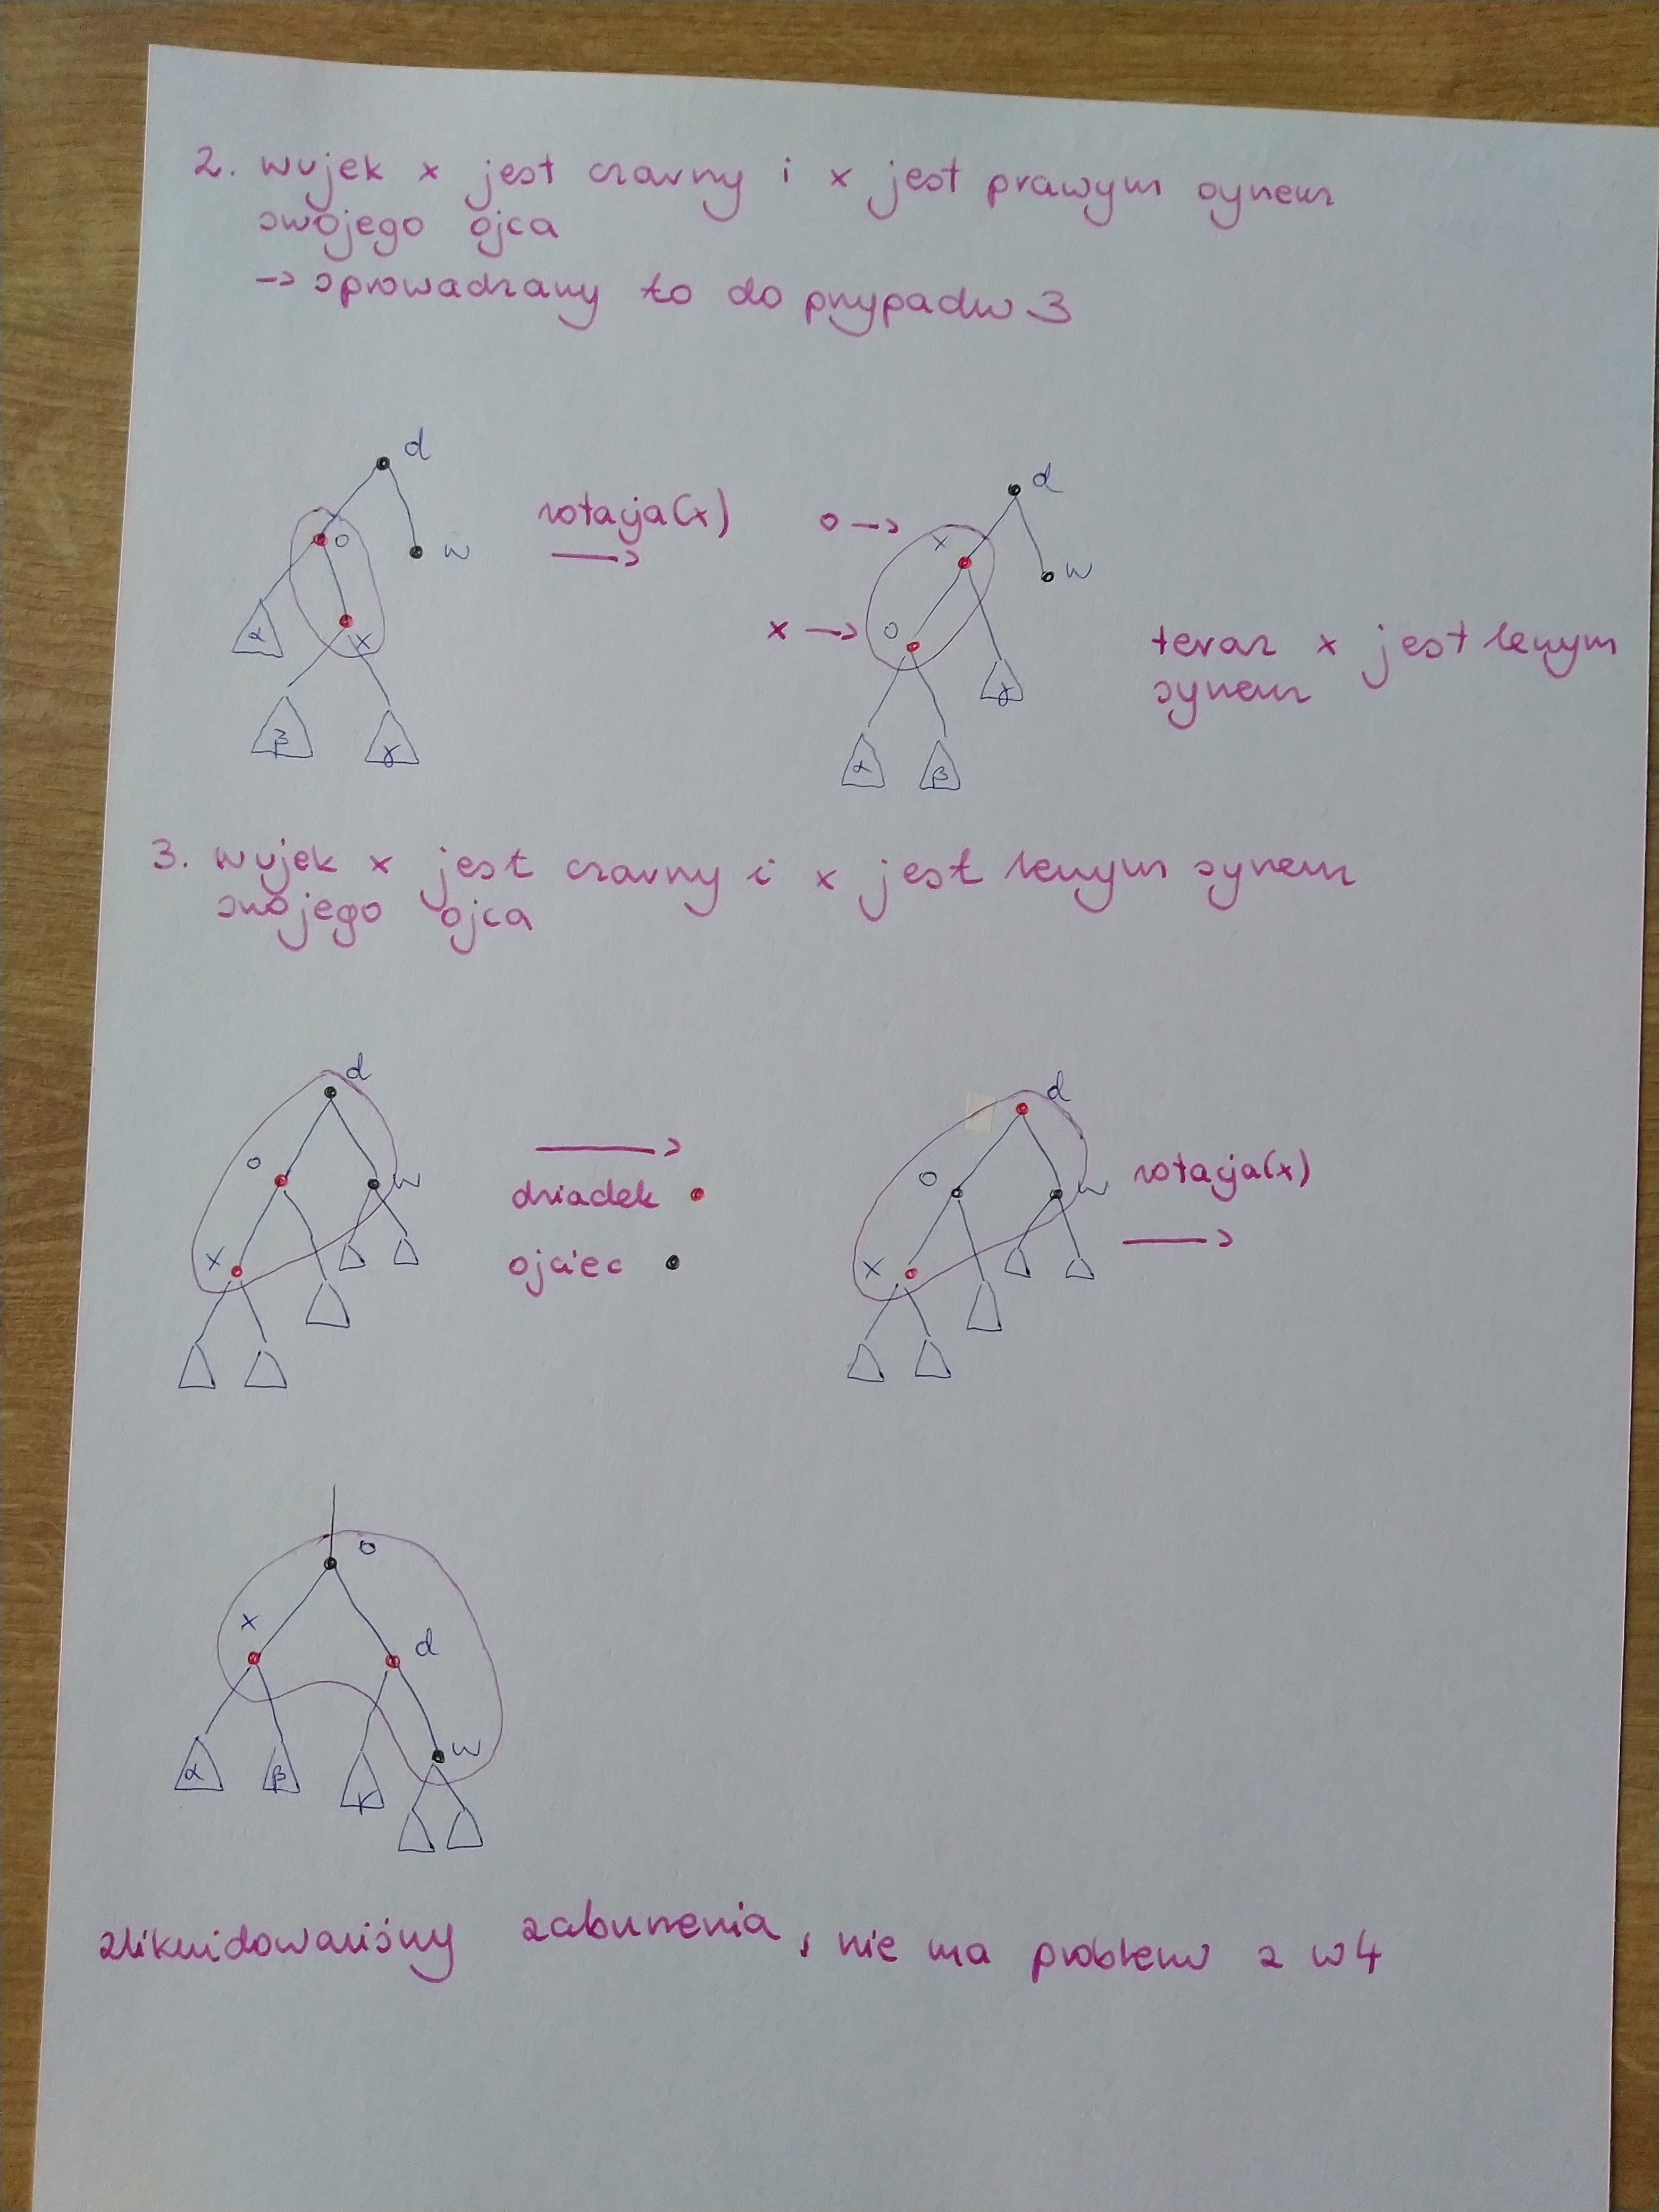 2. wujek x jest czarny i x jest prawym synem
swojego ojca
-> sprowadzamy to do przypadku 3
d
o
w
α
x
β
γ
rotacja(x)
o ->
x ->
d
x
w
o
γ
α
β
teraz x jest lewym
synem
3. wujek x jest czarny i x jest lewym synem
swojego ojca
d
o
w
x
dziadek
ojciec
d
o
w
x
rotacja(x)
o
x
d
w
α
β
γ
zlikwidowaliśmy zaburzenia, nie ma problemu z w4